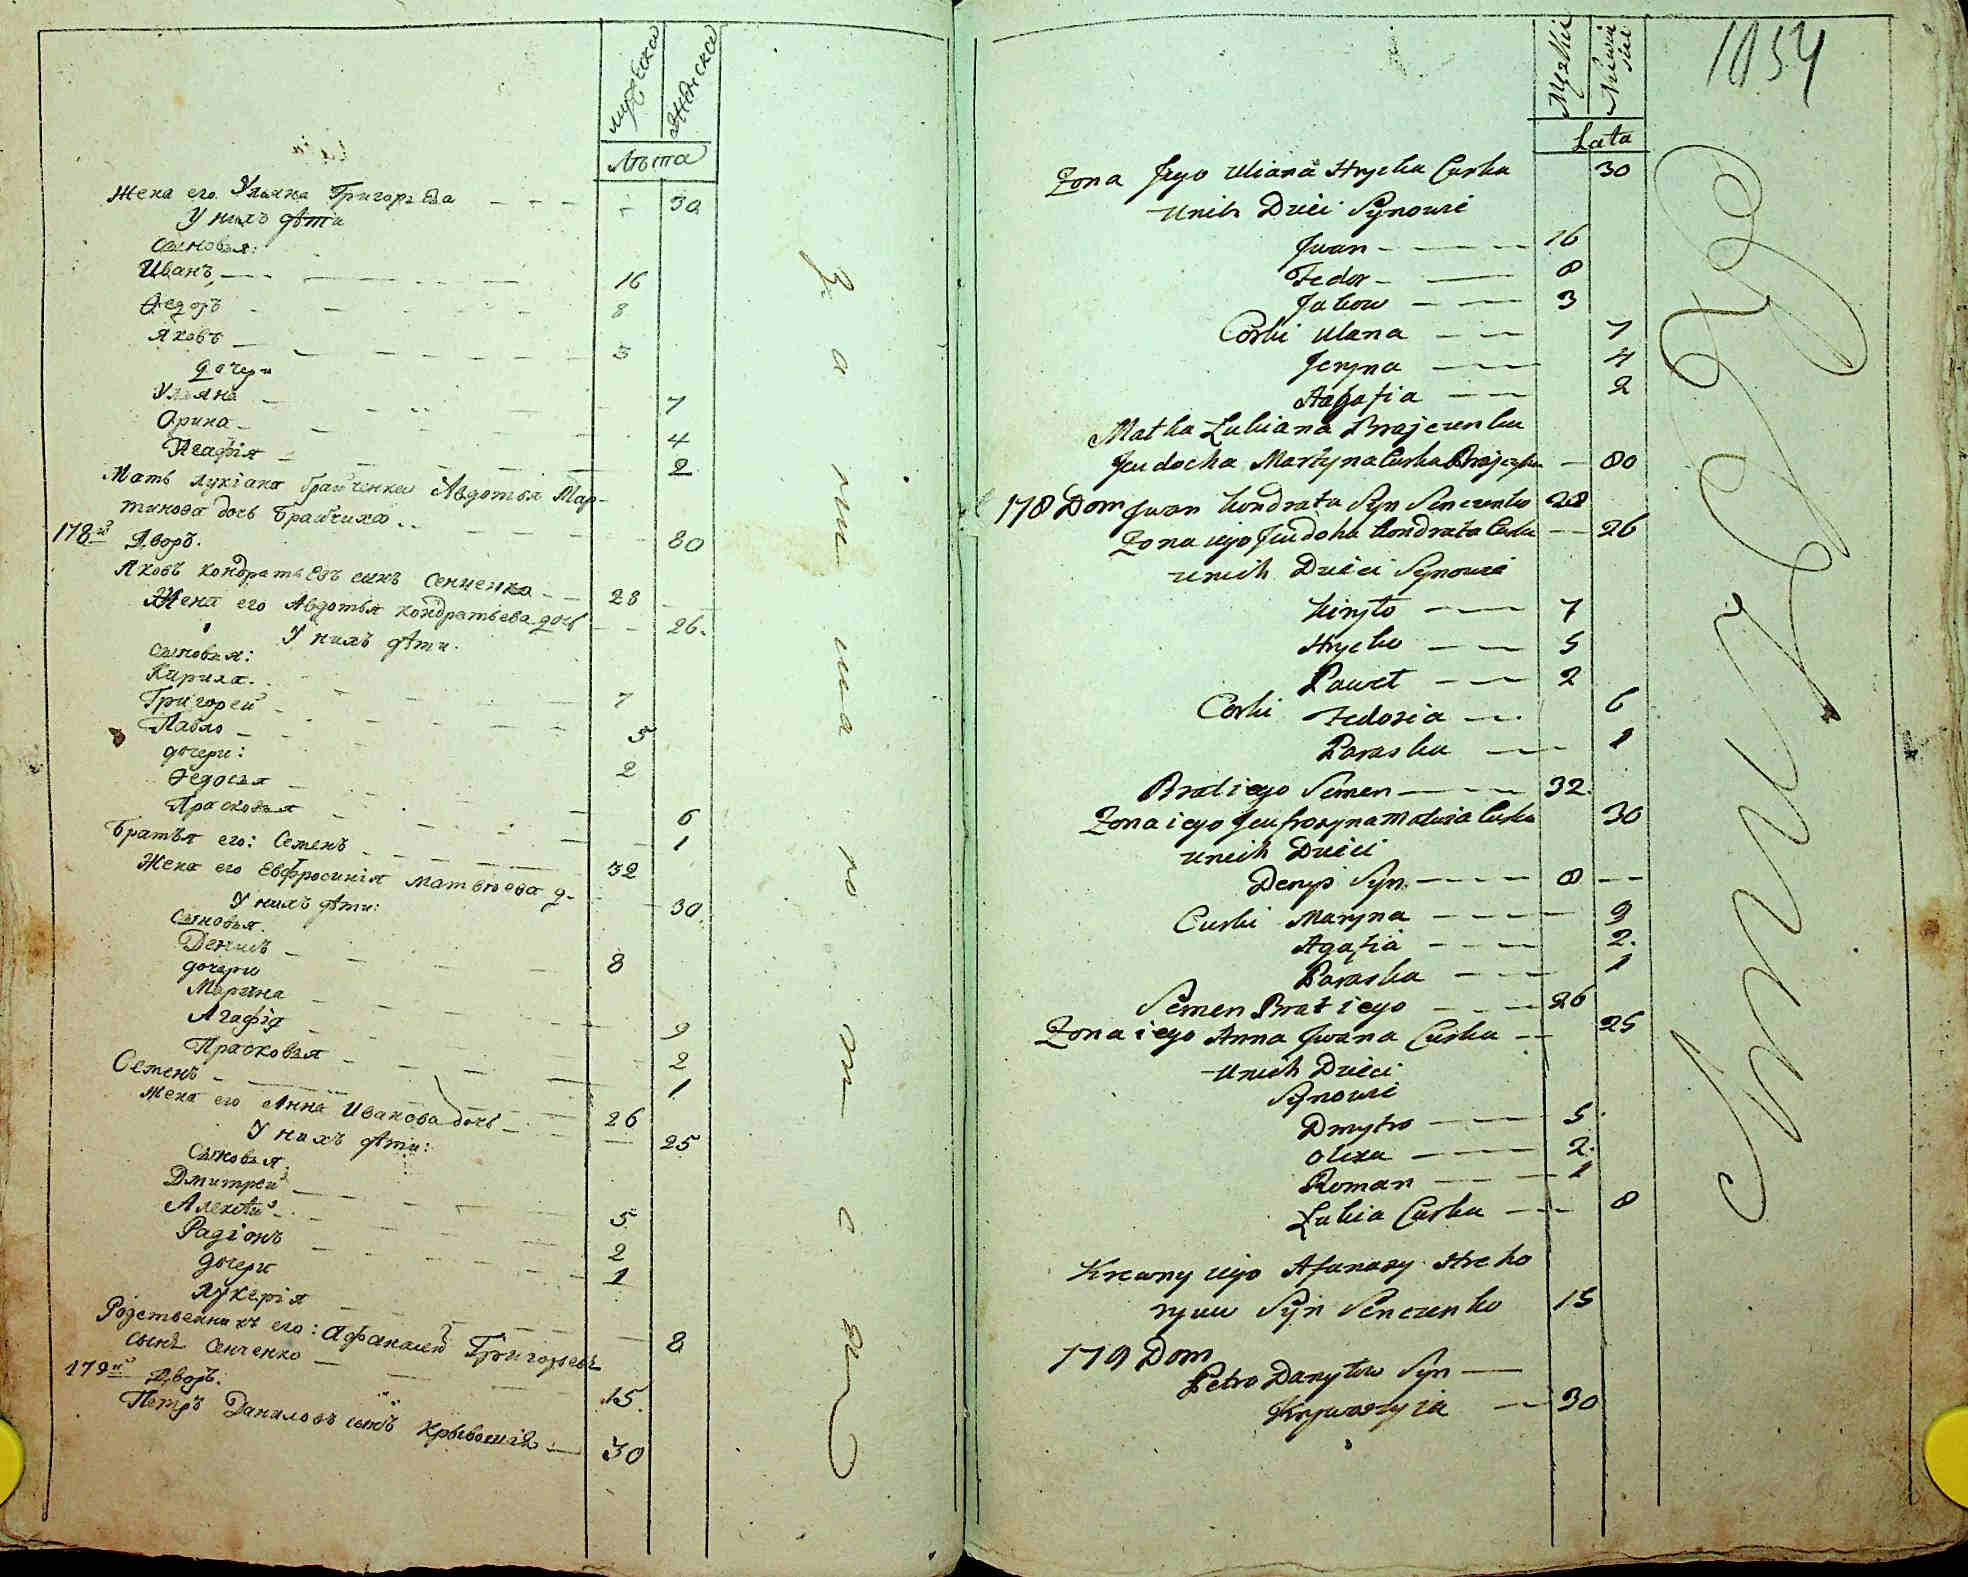 мужеска
женска
лѣта
Жена его Ульяна Григорьева 30
У нихъ дѣти
сыновья:
Иванъ 16
Ѳедоръ 8
Яковъ 3
дочери
Ульяна 7
Орина 4
Агафія 2
Мать лукіана Брайченка Авдотья Мар-
тинова дочь Брайчиха 80
178й Дворъ.
Яковъ кондратьевъ сынъ Сенченко 28
Жена его Авдотья кондратьева дочь 26.
У нихъ дѣти.
сыновья:
Кирила. 7
Григорей 5
Павло 2
дочери:
Ѳедосья 6
Прасковья 1
братья его: Семенъ 32
Жена его Евфросинія матвѣева д. 30.
У нихъ дѣти:
Сыновья.
Денисъ 8
дочери
Марина 9
Агафія 2
Прасковья 1
Семенъ 26
Жена его Анна Иванова дочь 25
У нихъ дѣти:
Сыновья.
Дмитрей 5
Алексѣй 2
Радіонъ 1
дочери
лукерія 8
Родственникъ его: Афанасей Григорьевъ
сынъ Сенченко 15.
179й Дворъ.
Петръ Даниловъ сынъ Крывошія 30
1054
Męzkii
Lata
Zona Jego Uliana Hrycka Curka 30
Unich Dzieci Synowie
Jwan 16
Fedor 8
Jakow 3
Corki Ulana 7
Jeryna 4
Hahafia 2
Matka Lukiana Brajczenka
Jeudocha Martyna Curka Brajczycha 80
178 Dom Jwan Kondrata Syn Senczenko 28
Zona iego Jeudoha Kondrata Curka 26
Unich Dzieci Synowie
Kiryło 7
Hrycko 5
Paweł 2
Corki Fedosia 6
Paraska 1
Brat iego Semen 32.
Zona iego Jeufrosyna Matwia Curka 30
Unich Dzieci
Denys Syn. 8
Curki Maryna 9
Agafia 2.
Paraska 1
Semen Brat iego 26
Zona iego Anna Jwana Curka 25
Unich Dzieci
Synowie
Dmytro 5
Olexa 2.
Roman 1
Lukia Curka 8
Krewny iego Afanasy Hreho
ryuw Syn Senczenko 15
179 Dom
Petro Danyłow Syn
Krywoszyia 30